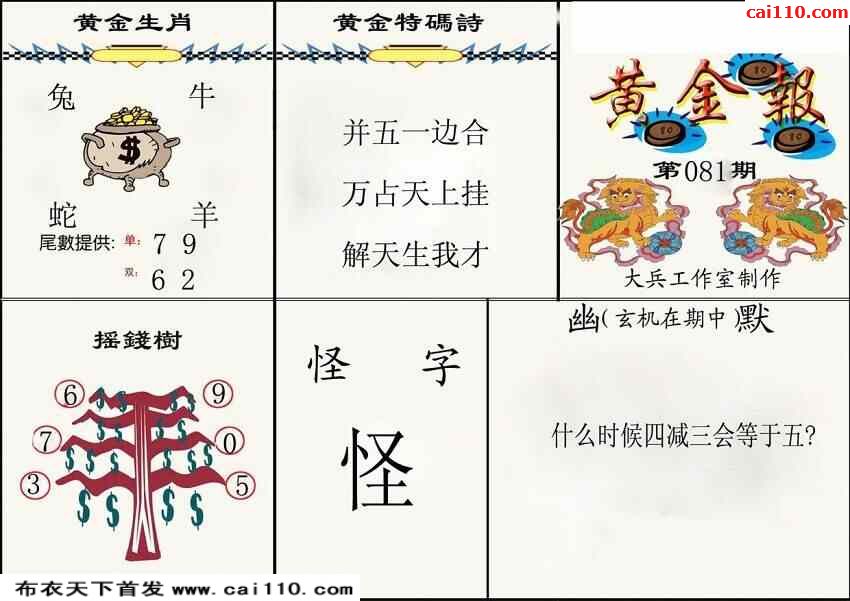 cai110.com
黄金生肖
兔 牛
$
蛇 羊
尾數提供: 单: 7 9
双: 6 2
黄金特碼詩
并五一边合
万占天上挂
解天生我才
黄金報
第081期
大兵工作室制作
摇錢樹
6 9
7 0
3 5
怪 字
怪
幽(玄机在期中)默
什么时候四减三会等于五?
布衣天下首发 www.cai110.com